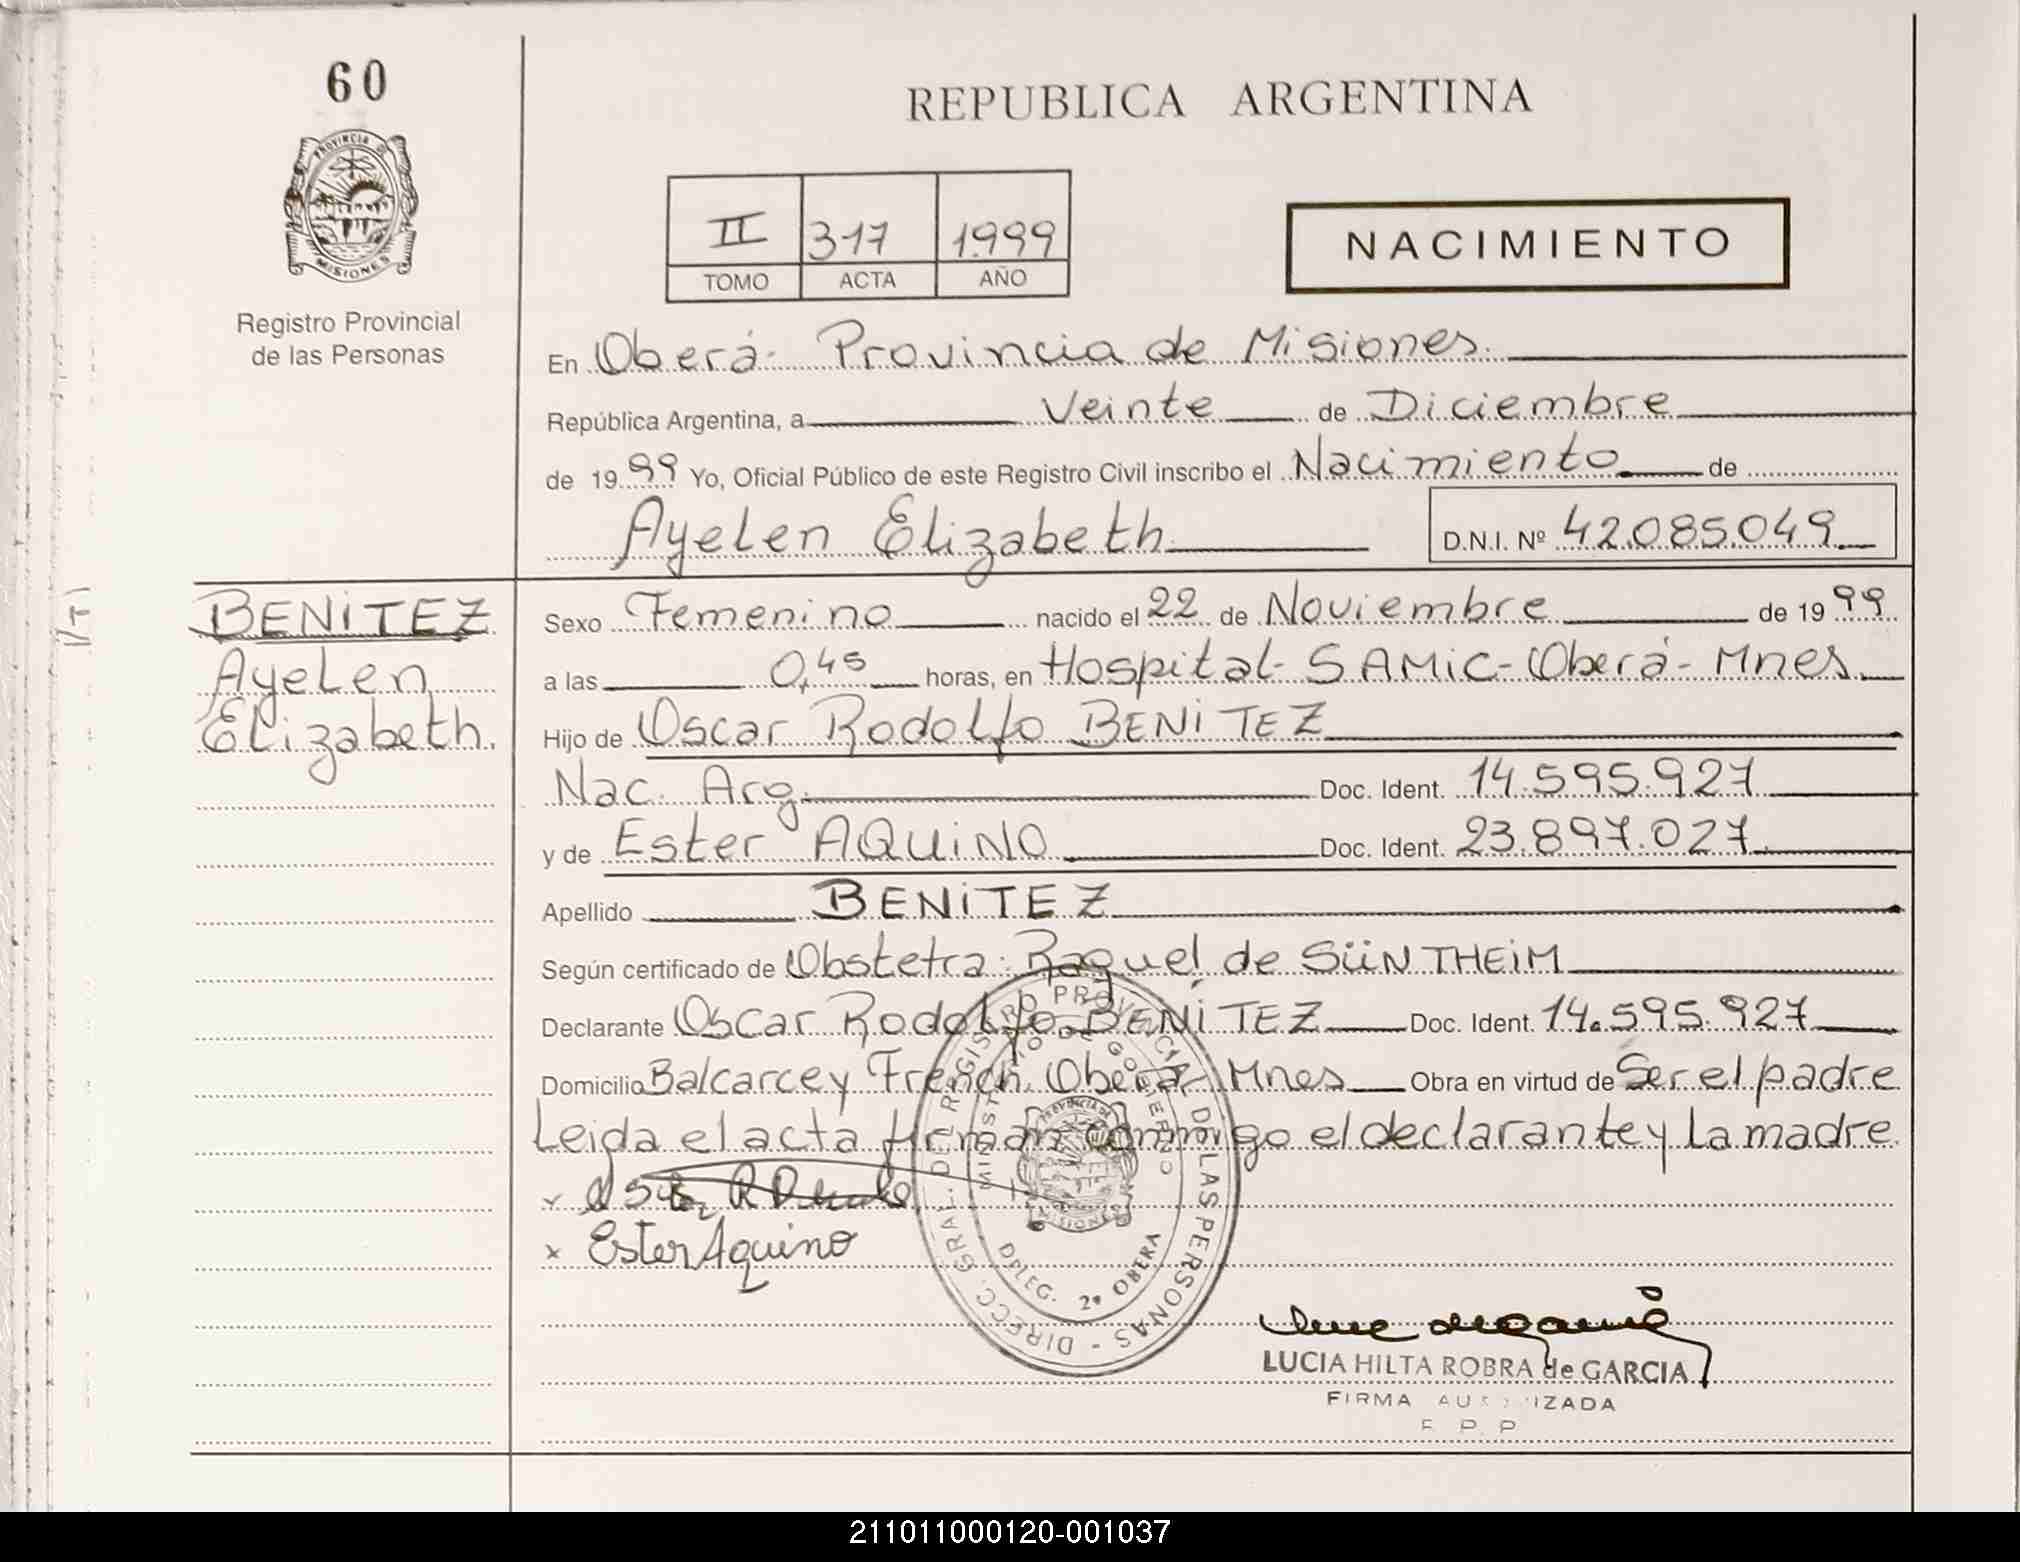 60
PROVINCIA DE
MISIONES
Registro Provincial
de las Personas
REPUBLICA ARGENTINA
II 317 1.999
TOMO ACTA AÑO
NACIMIENTO
En Oberá- Provincia de Misiones.
República Argentina, a Veinte de Diciembre
de 1999 Yo, Oficial Público de este Registro Civil inscribo el Nacimiento de
Ayelen Elizabeth D.N.I. Nº 42.085.049
BENITEZ
Ayelen
Elizabeth.
Sexo Femenino nacido el 22 de Noviembre de 1999
a las 0,45 horas, en Hospital- SAMIC-Oberá- Mnes.
Hijo de Oscar Rodolfo BENITEZ
Nac. Arg. Doc. Ident. 14.595.927
y de Ester AQUINO Doc. Ident. 23.897.027
Apellido BENITEZ
Según certificado de Obstetra: Raquel de SÜNTHEIM
Declarante Oscar Rodolfo BENITEZ Doc. Ident. 14.595.927
Domicilio Balcarce y French. Oberá- Mnes Obra en virtud de Ser el padre
Leida el acta firman conmigo el declarante y la madre
x
x Ester Aquino
DIRECC. GRAL. DEL REGISTRO PROVINCIAL DE LAS PERSONAS -
MINISTERIO DE GOBIERNO
PROVINCIA DE
MISIONES
DELEG. 2ª OBERA
LUCIA HILTA ROBRA de GARCIA
FIRMA AUTORIZADA
211011000120-001037